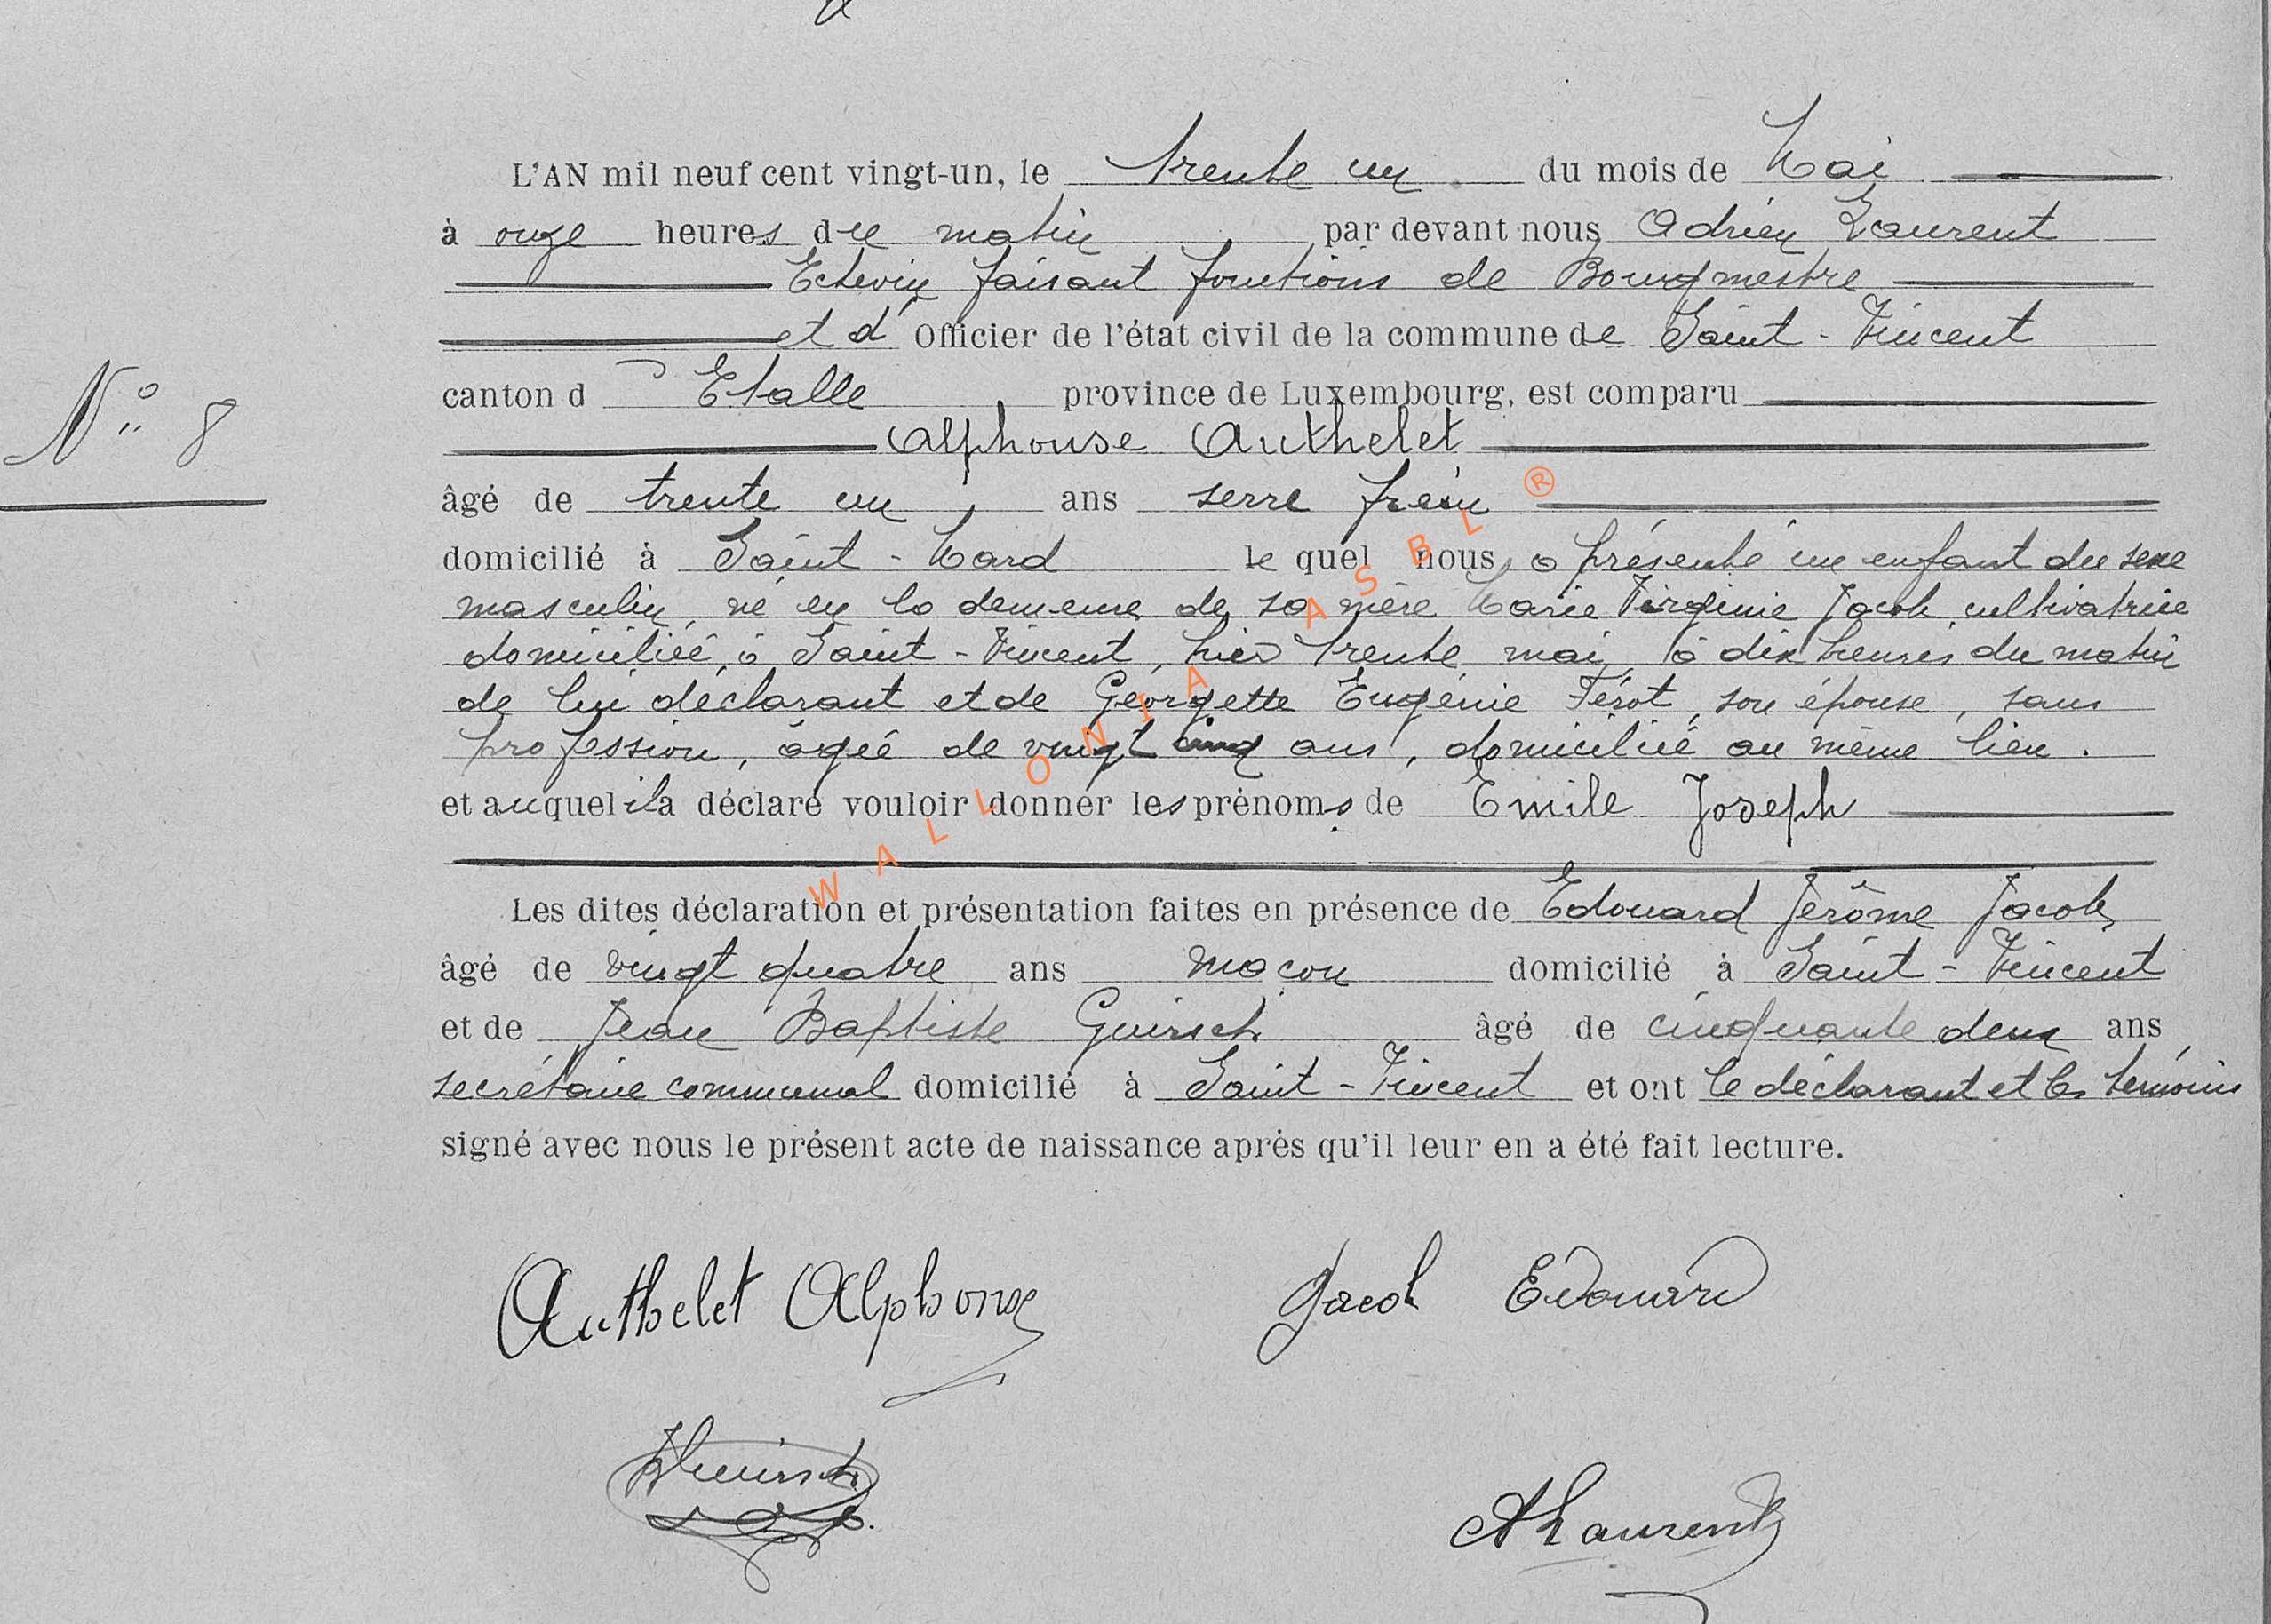 L'AN mil neuf cent vingt-un, le trente un du mois de Mai
à onze heures du matin par devant nous Adrien Laurent
Echevin faisant fonctions de Bourgmestre
et d' Officier de l'état civil de la commune de Saint-Vincent
N° 8
canton d'Etalle province de Luxembourg, est comparu
Alphonse Authelet
âgé de trente un ans serre frein
domicilié à Saint-Mard le quel nous a présenté un enfant du sexe
masculin, né en la demeure de sa mère Marie Virginie Jacob, cultivatrice
domiciliée à Saint-Vincent, hier trente mai, à dix heures du matin
de lui déclarant et de Georgette Eugénie Férot, son épouse, sans
profession, âgée de vingt cinq ans, domiciliée au même lieu.
et auquel il a déclaré vouloir donner les prénoms de Emile Joseph
Les dites déclaration et présentation faites en présence de Edouard Jérôme Jacob,
âgé de vingt quatre ans maçon domicilié à Saint-Vincent
et de Jean Baptiste Guirsch âgé de cinquante deux ans,
secrétaire communal domicilié à Saint-Vincent et ont le déclarant et les témoins
signé avec nous le présent acte de naissance après qu'il leur en a été fait lecture.
Authelet Alphonse Jacob Edouard
JBGuirsch
A Laurent
WALLONIA ASBL ®